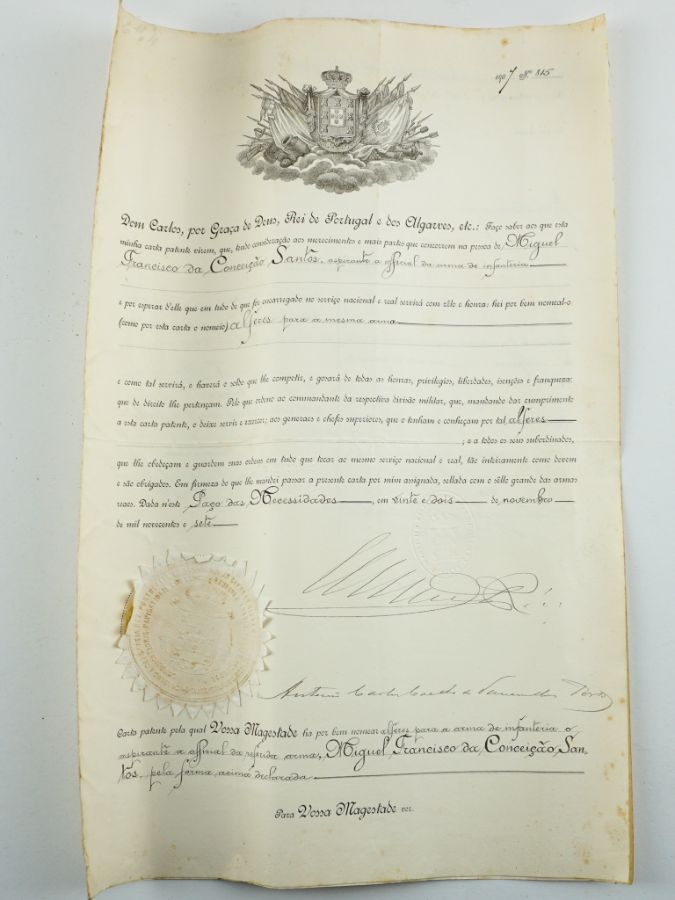 1907 Nº 815
Dom Carlos, por Graça de Deus, Rei de Portugal e dos Algarves, etc.: Faço saber aos que esta
minha carta patente virem, que, tendo consideração aos merecimentos e mais partes que concorrem na pessoa de Miguel
Francisco da Conceição Santos, aspirante a official da arma de infanteria
e por esperar d'elle que em tudo de que for encarregado no serviço nacional e real servirá com zêlo e honra: hei por bem nomeal-o
(como por esta carta o nomeio) alferes para a mesma arma
e como tal servirá, e haverá o soldo que lhe competir, e gosará de todas as honras, privilegios, liberdades, isenções e franquezas
que de direito lhe pertençam. Pelo que ordeno ao commandante da respectiva divisão militar, que, mandando dar cumprimento
a esta carta patente, o deixe servir e exercer; aos generaes e chefes superiores, que o tenham e conheçam por tal alferes
; e a todos os seus subordinados,
que lhe obedeçam e guardem suas ordens em tudo que tocar ao mesmo serviço nacional e real, tão inteiramente como devem
e são obrigados. Em firmeza do que lhe mandei passar a presente carta por mim assignada, sellada com o sêllo grande das armas
reaes. Dada n'este Paço das Necessidades, em vinte e dois de novembro
de mil novecentos e sete
Antonio Carlos Coelho de Vasconcellos Porto
Carta patente pela qual Vossa Magestade ha por bem nomear alferes para a arma de infanteria o
aspirante a official da referida arma, Miguel Francisco da Conceição San-
tos, pela forma acima declarada
Para Vossa Magestade ver.